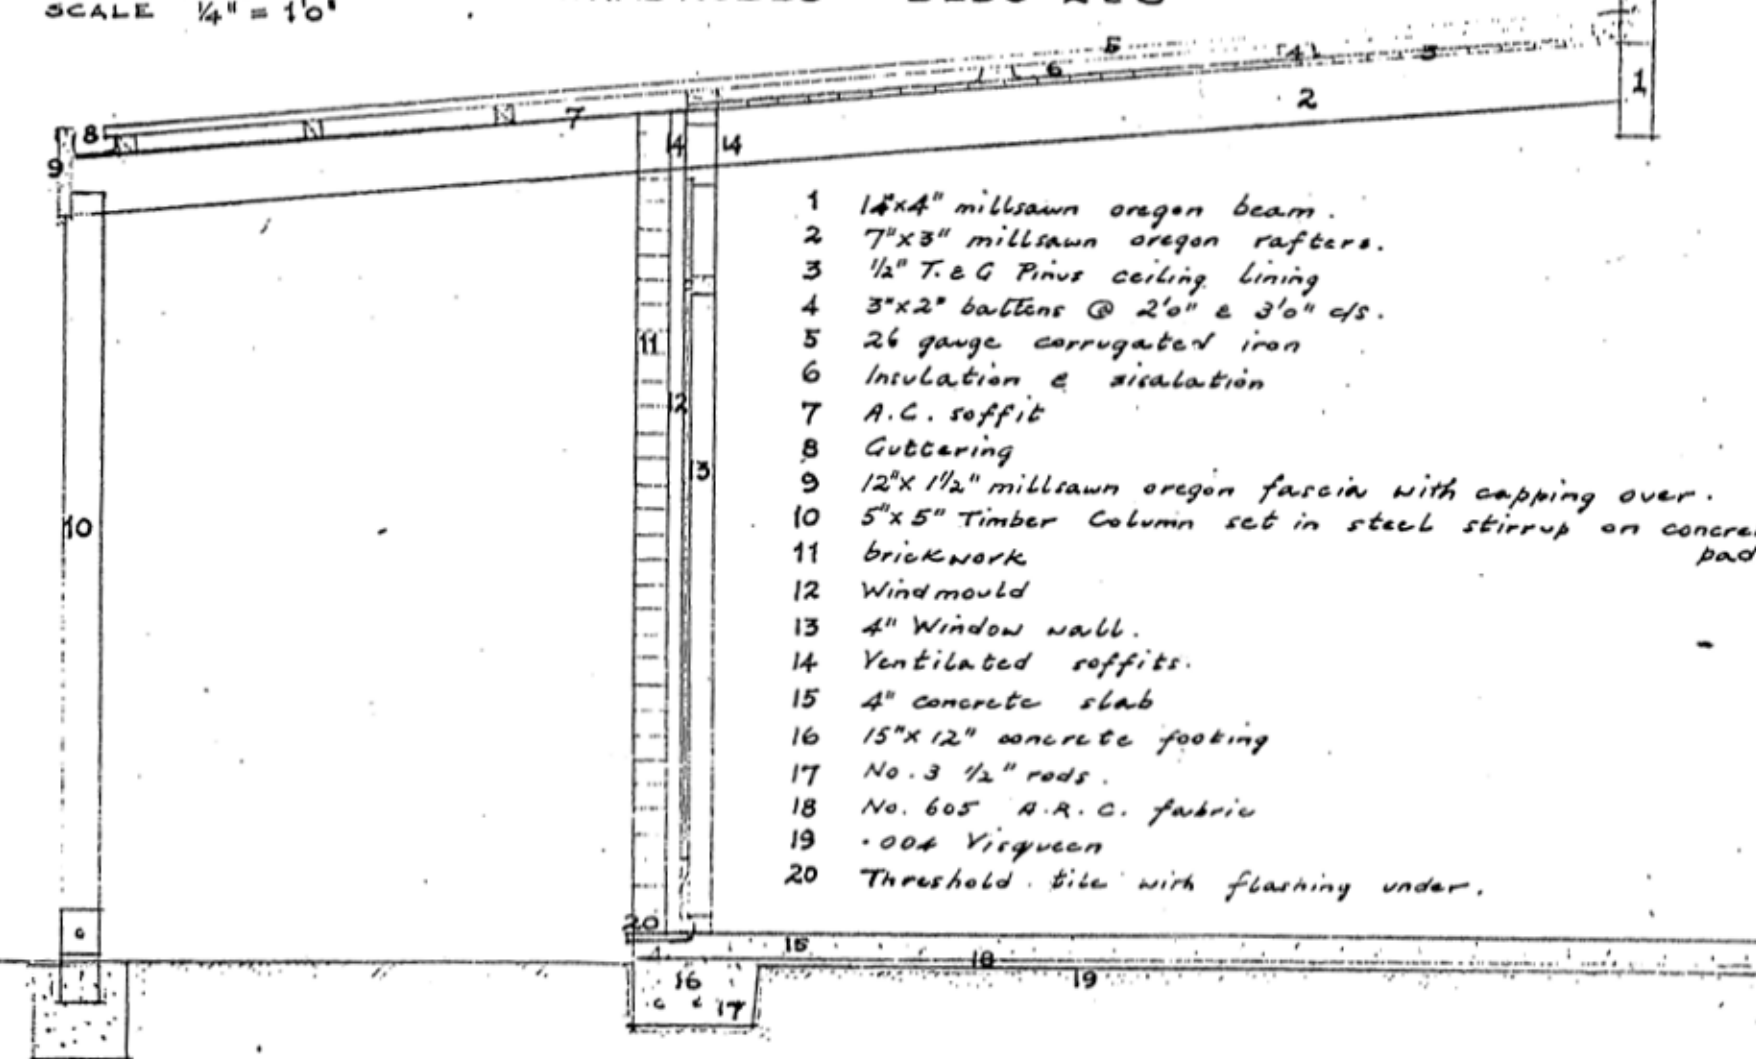 SCALE 1/4" = 1'0"
5
4
3
6
1
2
7
8
9
14
14
1 14"x4" millsawn oregon beam.
2 7"x3" millsawn oregon rafters.
3 1/2" T. & G Pinus ceiling lining
4 3"x2" battens @ 2'0" & 3'0" c/s.
5 26 gauge corrugated iron
6 Insulation & sisalation
7 A.C. soffit
8 Guttering
9 12"x 1 1/2" millsawn oregon fascia with capping over.
10 5"x 5" Timber Column set in steel stirrup on
pad
11 brickwork
12 Windmould
13 4" Window wall.
14 Ventilated soffits.
15 4" concrete slab
16 15"x 12" concrete footing
17 No. 3 1/2" rods.
18 No. 605 A.R.C. fabric
19 .004 Visqueen
20 Threshold tile with flashing under.
11
12
13
10
20
15
18
19
16
17